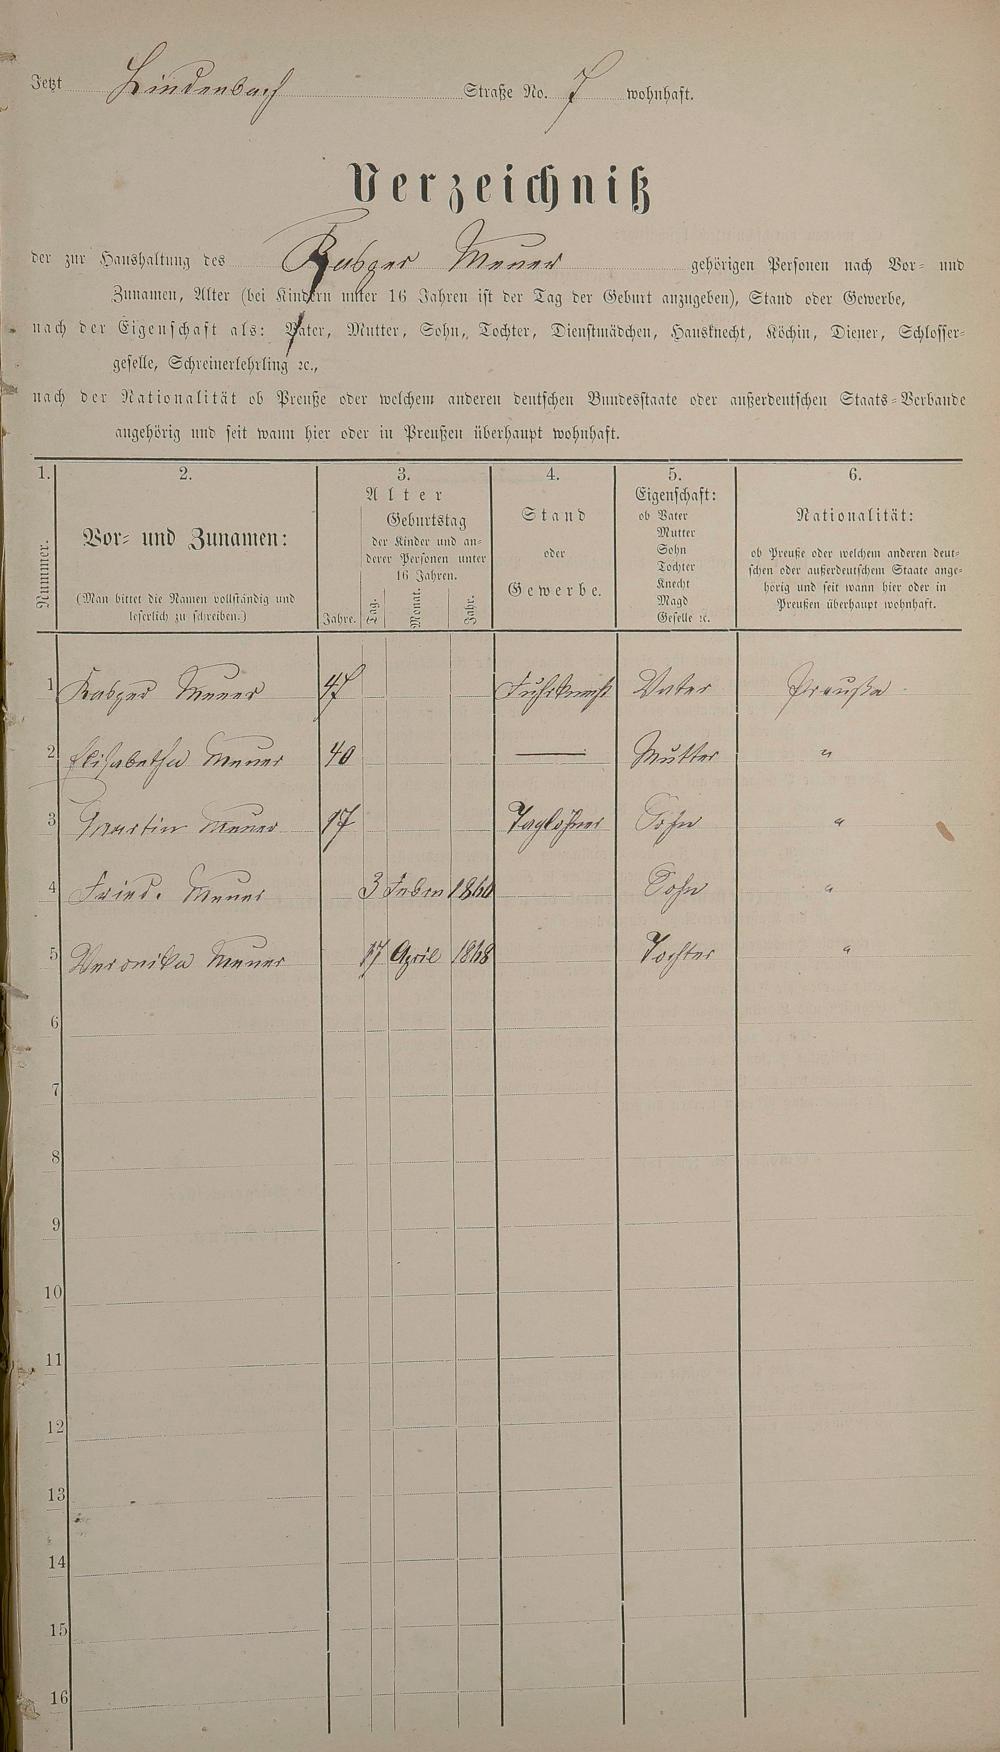 Jetzt Lindenbach Straße No. 7 wohnhaft.
Verzeichniß
der zur Haushaltung des Kasper Meuer gehörigen Personen nach Vor- und
Zunamen, Alter (bei Kindern unter 16 Jahren ist der Tag der Geburt anzugeben), Stand oder Gewerbe,
nach der Eigenschaft als: Vater, Mutter, Sohn, Tochter, Dienstmädchen, Hausknecht, Köchin, Diener, Schlosser-
geselle, Schreinerlehrling ꝛc.,
nach der Nationalität ob Preuße oder welchem anderen deutschen Bundesstaate oder außerdeutschen Staats-Verbande
angehörig und seit wann hier oder in Preußen überhaupt wohnhaft.
1. 2. 3. 4. 5. 6.
Nummer.
Vor- und Zunamen:
(Man bittet die Namen vollständig und
leserlich zu schreiben.)
Alter
Geburtstag
der Kinder und an-
derer Personen unter
16 Jahren.
Jahre. Tag. Monat. Jahr.
Stand
oder
Gewerbe.
Eigenschaft:
ob Vater
Mutter
Sohn
Tochter
Knecht
Magd
Geselle ꝛc.
Nationalität:
ob Preuße oder welchem anderen deut-
schen oder außerdeutschem Staate ange-
hörig und seit wann hier oder in
Preußen überhaupt wohnhaft.
1 Kasper Meuer 47 Fuhrknecht Vater Preuße
2 Elisabetha Meuer 40 — Mutter "
3 Martin Meuer 17 Taglöhner Sohn "
4 Fried. Meuer 3 Sohn "
5 Veronika Meuer 17 April 1868 Tochter "
6
7
8
9
10
11
12
13
14
15
16